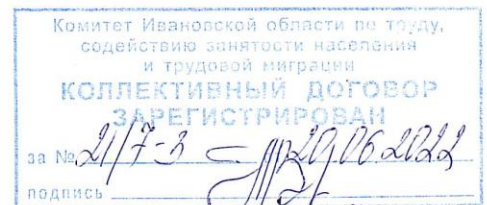 Комитет Ивановской области по труду,
содействию занятости населения
и трудовой миграции
КОЛЛЕКТИВНЫЙ ДОГОВОР
ЗАРЕГИСТРИРОВАН
за № 21/7-3 20.06.2022
подпись